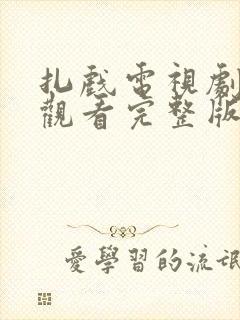 扎戲電視劇
觀看完整版
愛學習的流氓